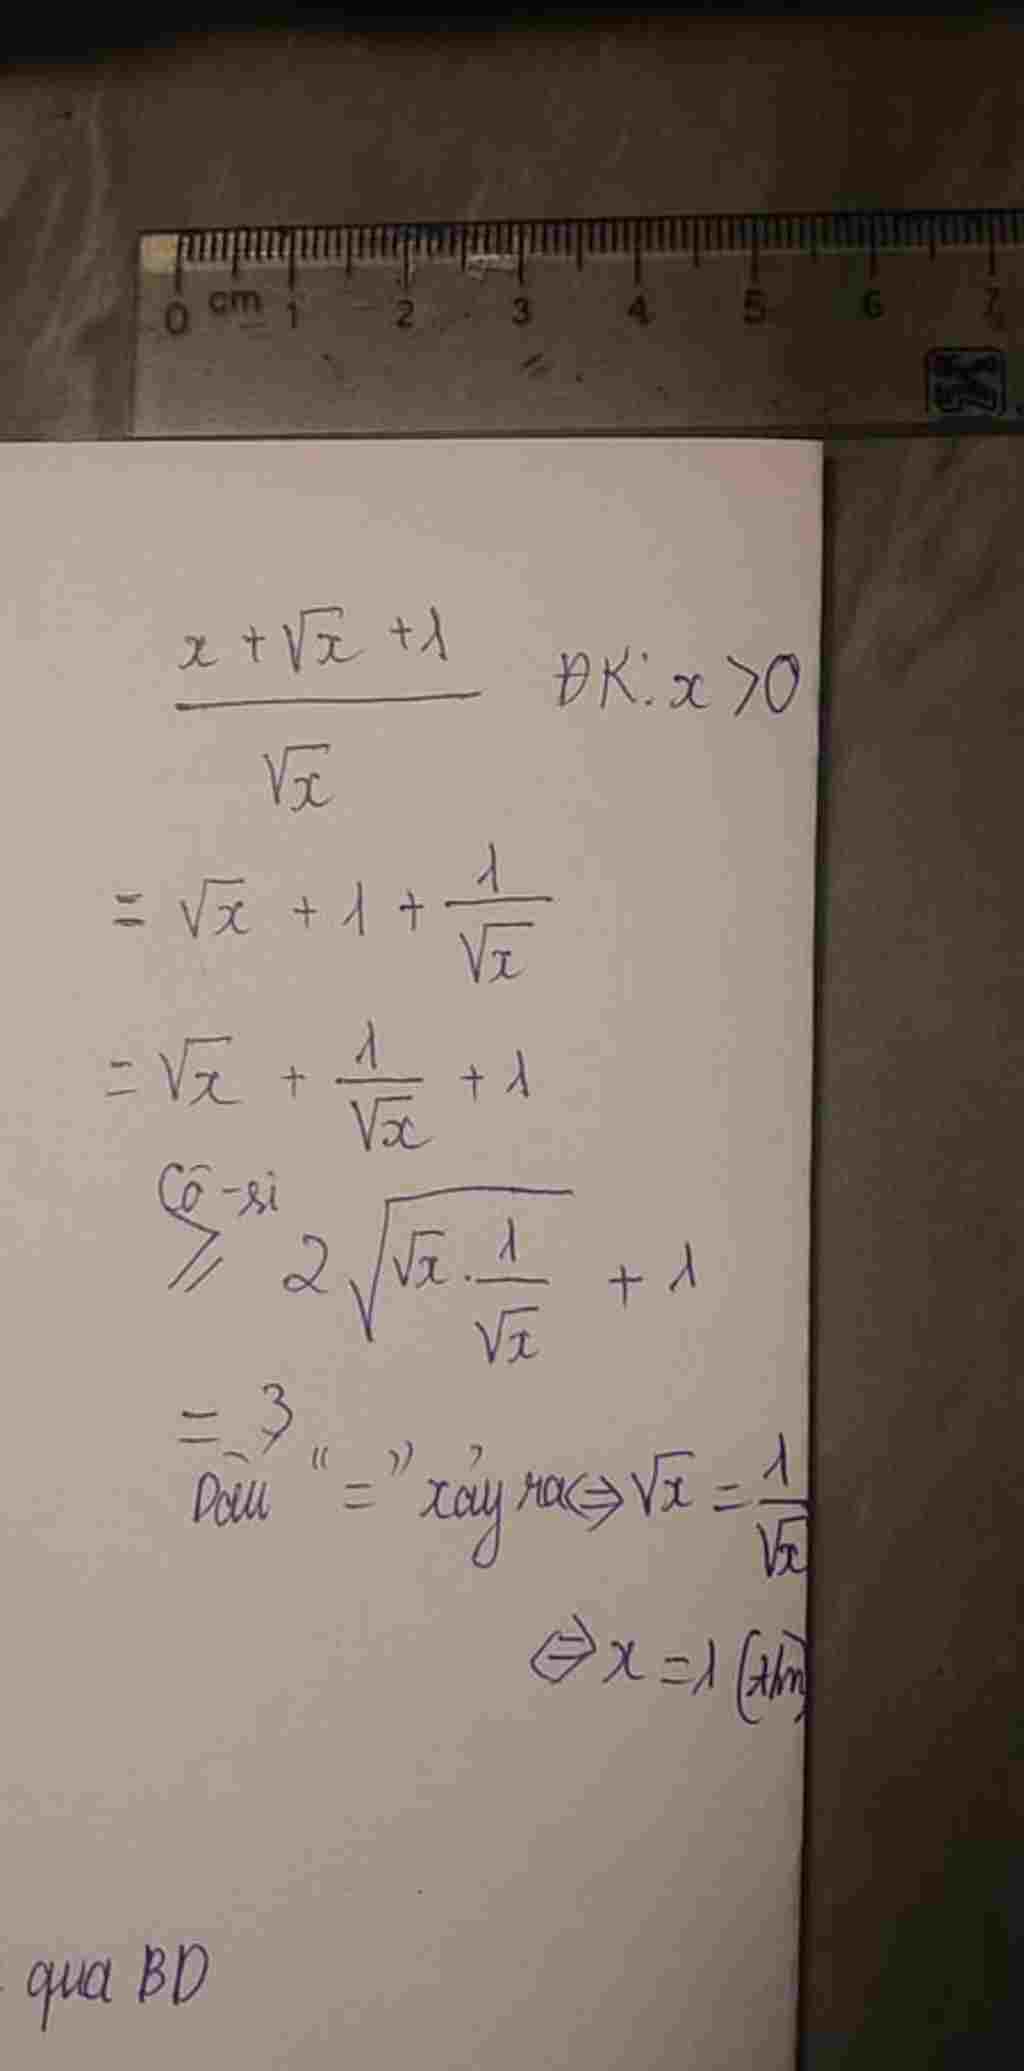 0 cm 1 2 3 4 5 6 7
x + √x + 1 / √x ĐK: x > 0
= √x + 1 + 1/√x
= √x + 1/√x + 1
Cô-si
≥ 2√(√x . 1/√x) + 1
= 3
Dấu "=" xảy ra ⇔ √x = 1/√x
⇔ x = 1 (t/m)
qua BD